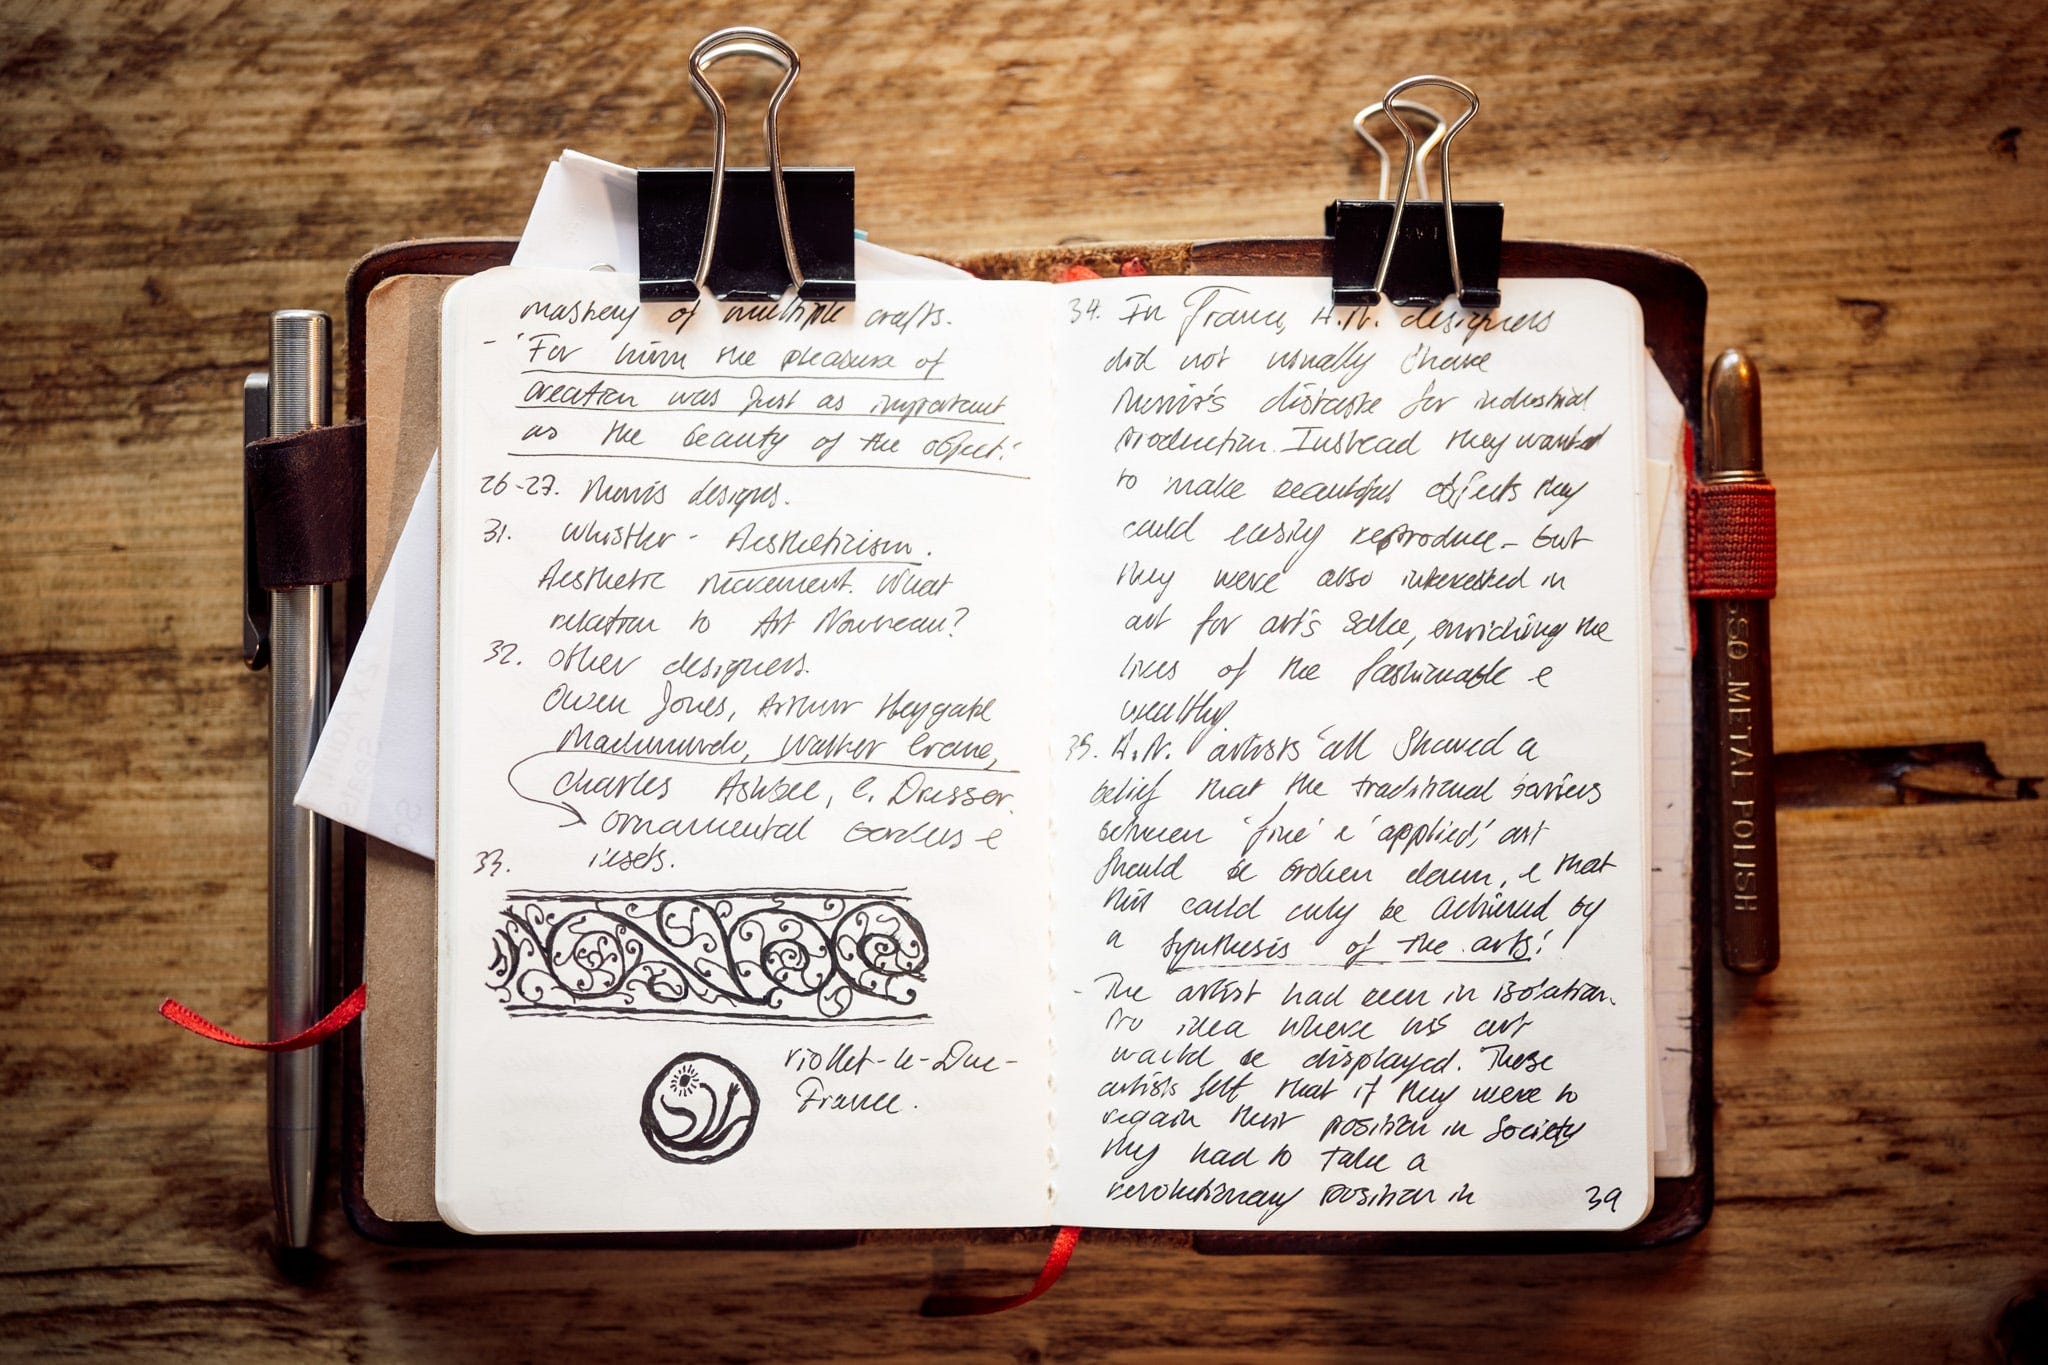 mastery of multiple crafts.
- 'For him the pleasure of
creation was just as important
as the beauty of the object.'
26-27. Morris designs.
31. Whistler - Aestheticism.
Aesthetic movement. What
relation to Art Nouveau?
32. Other designers.
Owen Jones, Arthur Heygate
Mackmurdo, Walter Crane,
Charles Ashbee, C. Dresser.
ornamental borders e
insets.
33.
Viollet-le-Duc -
France.
34. In France, A.N. designers
did not usually share
Morris's distaste for industrial
production. Instead they wanted
to make beautiful objects they
could easily reproduce - but
they were also interested in
art for art's sake, enriching the
lives of the fashionable e
wealthy.
35. A.N. artists 'all shared a
belief that the traditional barriers
between 'fine' e 'applied' art
should be broken down, e that
this could only be achieved by
a synthesis of the arts.'
- The artist had been in isolation.
No idea where his art
would be displayed. These
artists felt that if they were to
regain their position in society
they had to take a
revolutionary position in
39
METAL POLISH